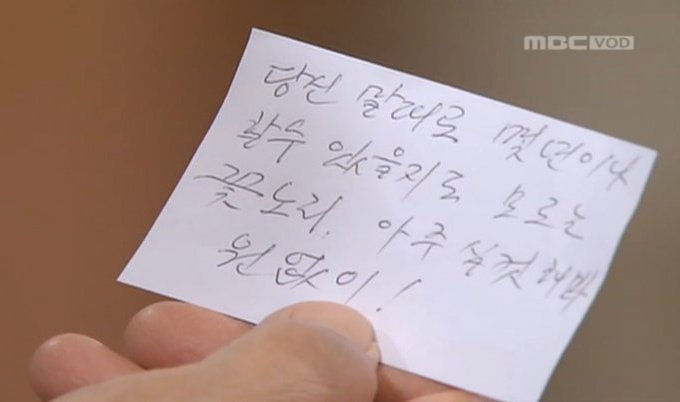 MBC VOD
당신 말대로 몇년이나
할수 있을지도 모르는
꽃노리. 아주 실컷해봐
원없이!